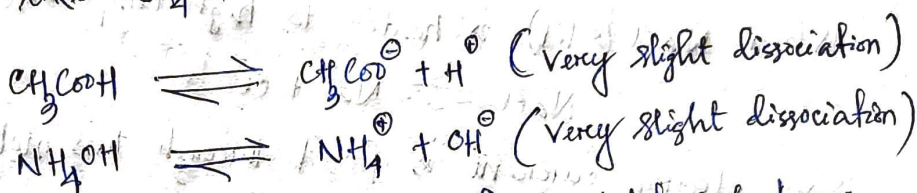 CH₃COOH ⇌ CH₃COO⊖ + H⊕ (very slight dissociation)
NH₄OH ⇌ NH₄⊕ + OH⊖ (very slight dissociation)